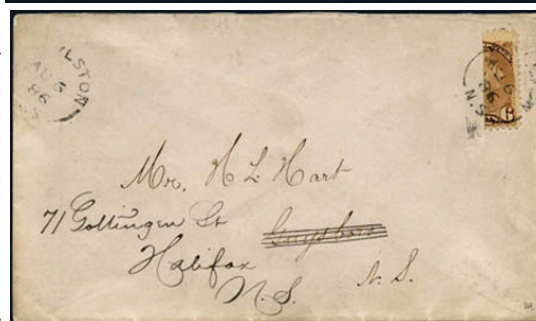 ILSTON
AU 6
86
AU 6
86
N.S.
Mr. H L Hart
71 Gottingen St Guysboro
Halifax
N.S. N.S.